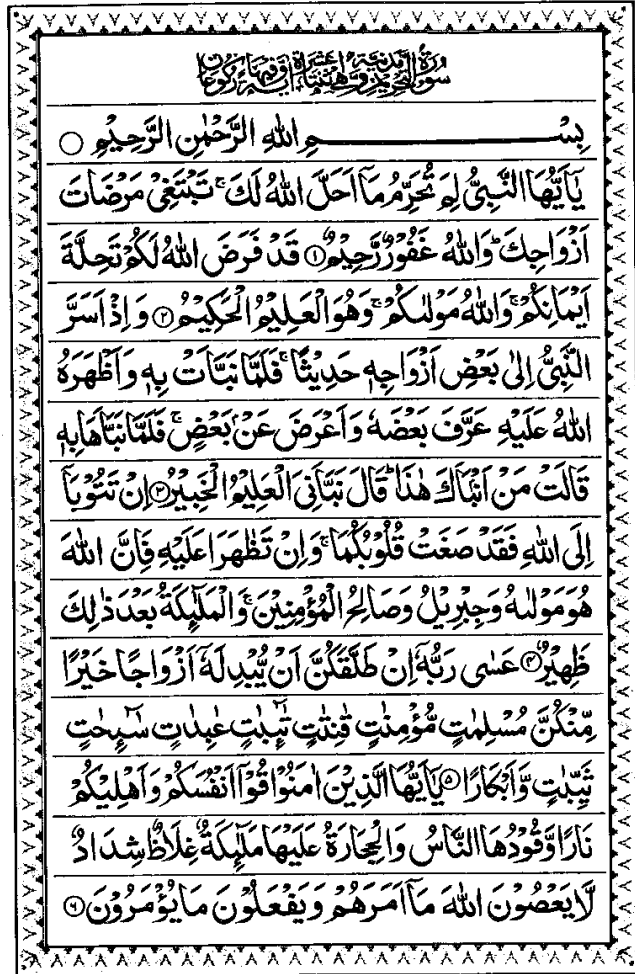 سُوْرَةُ التَّحْرِيْمِ مَدَنِيَّةٌ وَّهِيَ اثْنَتَا عَشْرَةَ اٰيَةً وَّفِيْهَا رُكُوْعَانِ
بِسْمِ اللّٰهِ الرَّحْمٰنِ الرَّحِيْمِ ○
يٰۤاَيُّهَا النَّبِيُّ لِمَ تُحَرِّمُ مَاۤ اَحَلَّ اللّٰهُ لَكَ ۚ تَبْتَغِيْ مَرْضَاتَ
اَزْوَاجِكَ ؕ وَاللّٰهُ غَفُوْرٌ رَّحِيْمٌ ۝۱ قَدْ فَرَضَ اللّٰهُ لَكُمْ تَحِلَّةَ
اَيْمَانِكُمْ ۚ وَاللّٰهُ مَوْلٰىكُمْ ۚ وَهُوَ الْعَلِيْمُ الْحَكِيْمُ ۝۲ وَاِذْ اَسَرَّ
النَّبِيُّ اِلٰى بَعْضِ اَزْوَاجِهٖ حَدِيْثًا ۚ فَلَمَّا نَبَّاَتْ بِهٖ وَاَظْهَرَهُ
اللّٰهُ عَلَيْهِ عَرَّفَ بَعْضَهٗ وَاَعْرَضَ عَنْۢ بَعْضٍ ۚ فَلَمَّا نَبَّاَهَا بِهٖ
قَالَتْ مَنْ اَنْۢبَاَكَ هٰذَا ؕ قَالَ نَبَّاَنِيَ الْعَلِيْمُ الْخَبِيْرُ ۝۳ اِنْ تَتُوْبَاۤ
اِلَى اللّٰهِ فَقَدْ صَغَتْ قُلُوْبُكُمَا ۚ وَاِنْ تَظٰهَرَا عَلَيْهِ فَاِنَّ اللّٰهَ
هُوَ مَوْلٰىهُ وَجِبْرِيْلُ وَصَالِحُ الْمُؤْمِنِيْنَ ۚ وَالْمَلٰٓئِكَةُ بَعْدَ ذٰلِكَ
ظَهِيْرٌ ۝۴ عَسٰى رَبُّهٗۤ اِنْ طَلَّقَكُنَّ اَنْ يُّبْدِلَهٗۤ اَزْوَاجًا خَيْرًا
مِّنْكُنَّ مُسْلِمٰتٍ مُّؤْمِنٰتٍ قٰنِتٰتٍ تٰٓئِبٰتٍ عٰبِدٰتٍ سٰٓئِحٰتٍ
ثَيِّبٰتٍ وَّاَبْكَارًا ۝۵ يٰۤاَيُّهَا الَّذِيْنَ اٰمَنُوْا قُوْۤا اَنْفُسَكُمْ وَاَهْلِيْكُمْ
نَارًا وَّقُوْدُهَا النَّاسُ وَالْحِجَارَةُ عَلَيْهَا مَلٰٓئِكَةٌ غِلَاظٌ شِدَادٌ
لَّا يَعْصُوْنَ اللّٰهَ مَاۤ اَمَرَهُمْ وَيَفْعَلُوْنَ مَا يُؤْمَرُوْنَ ۝۶